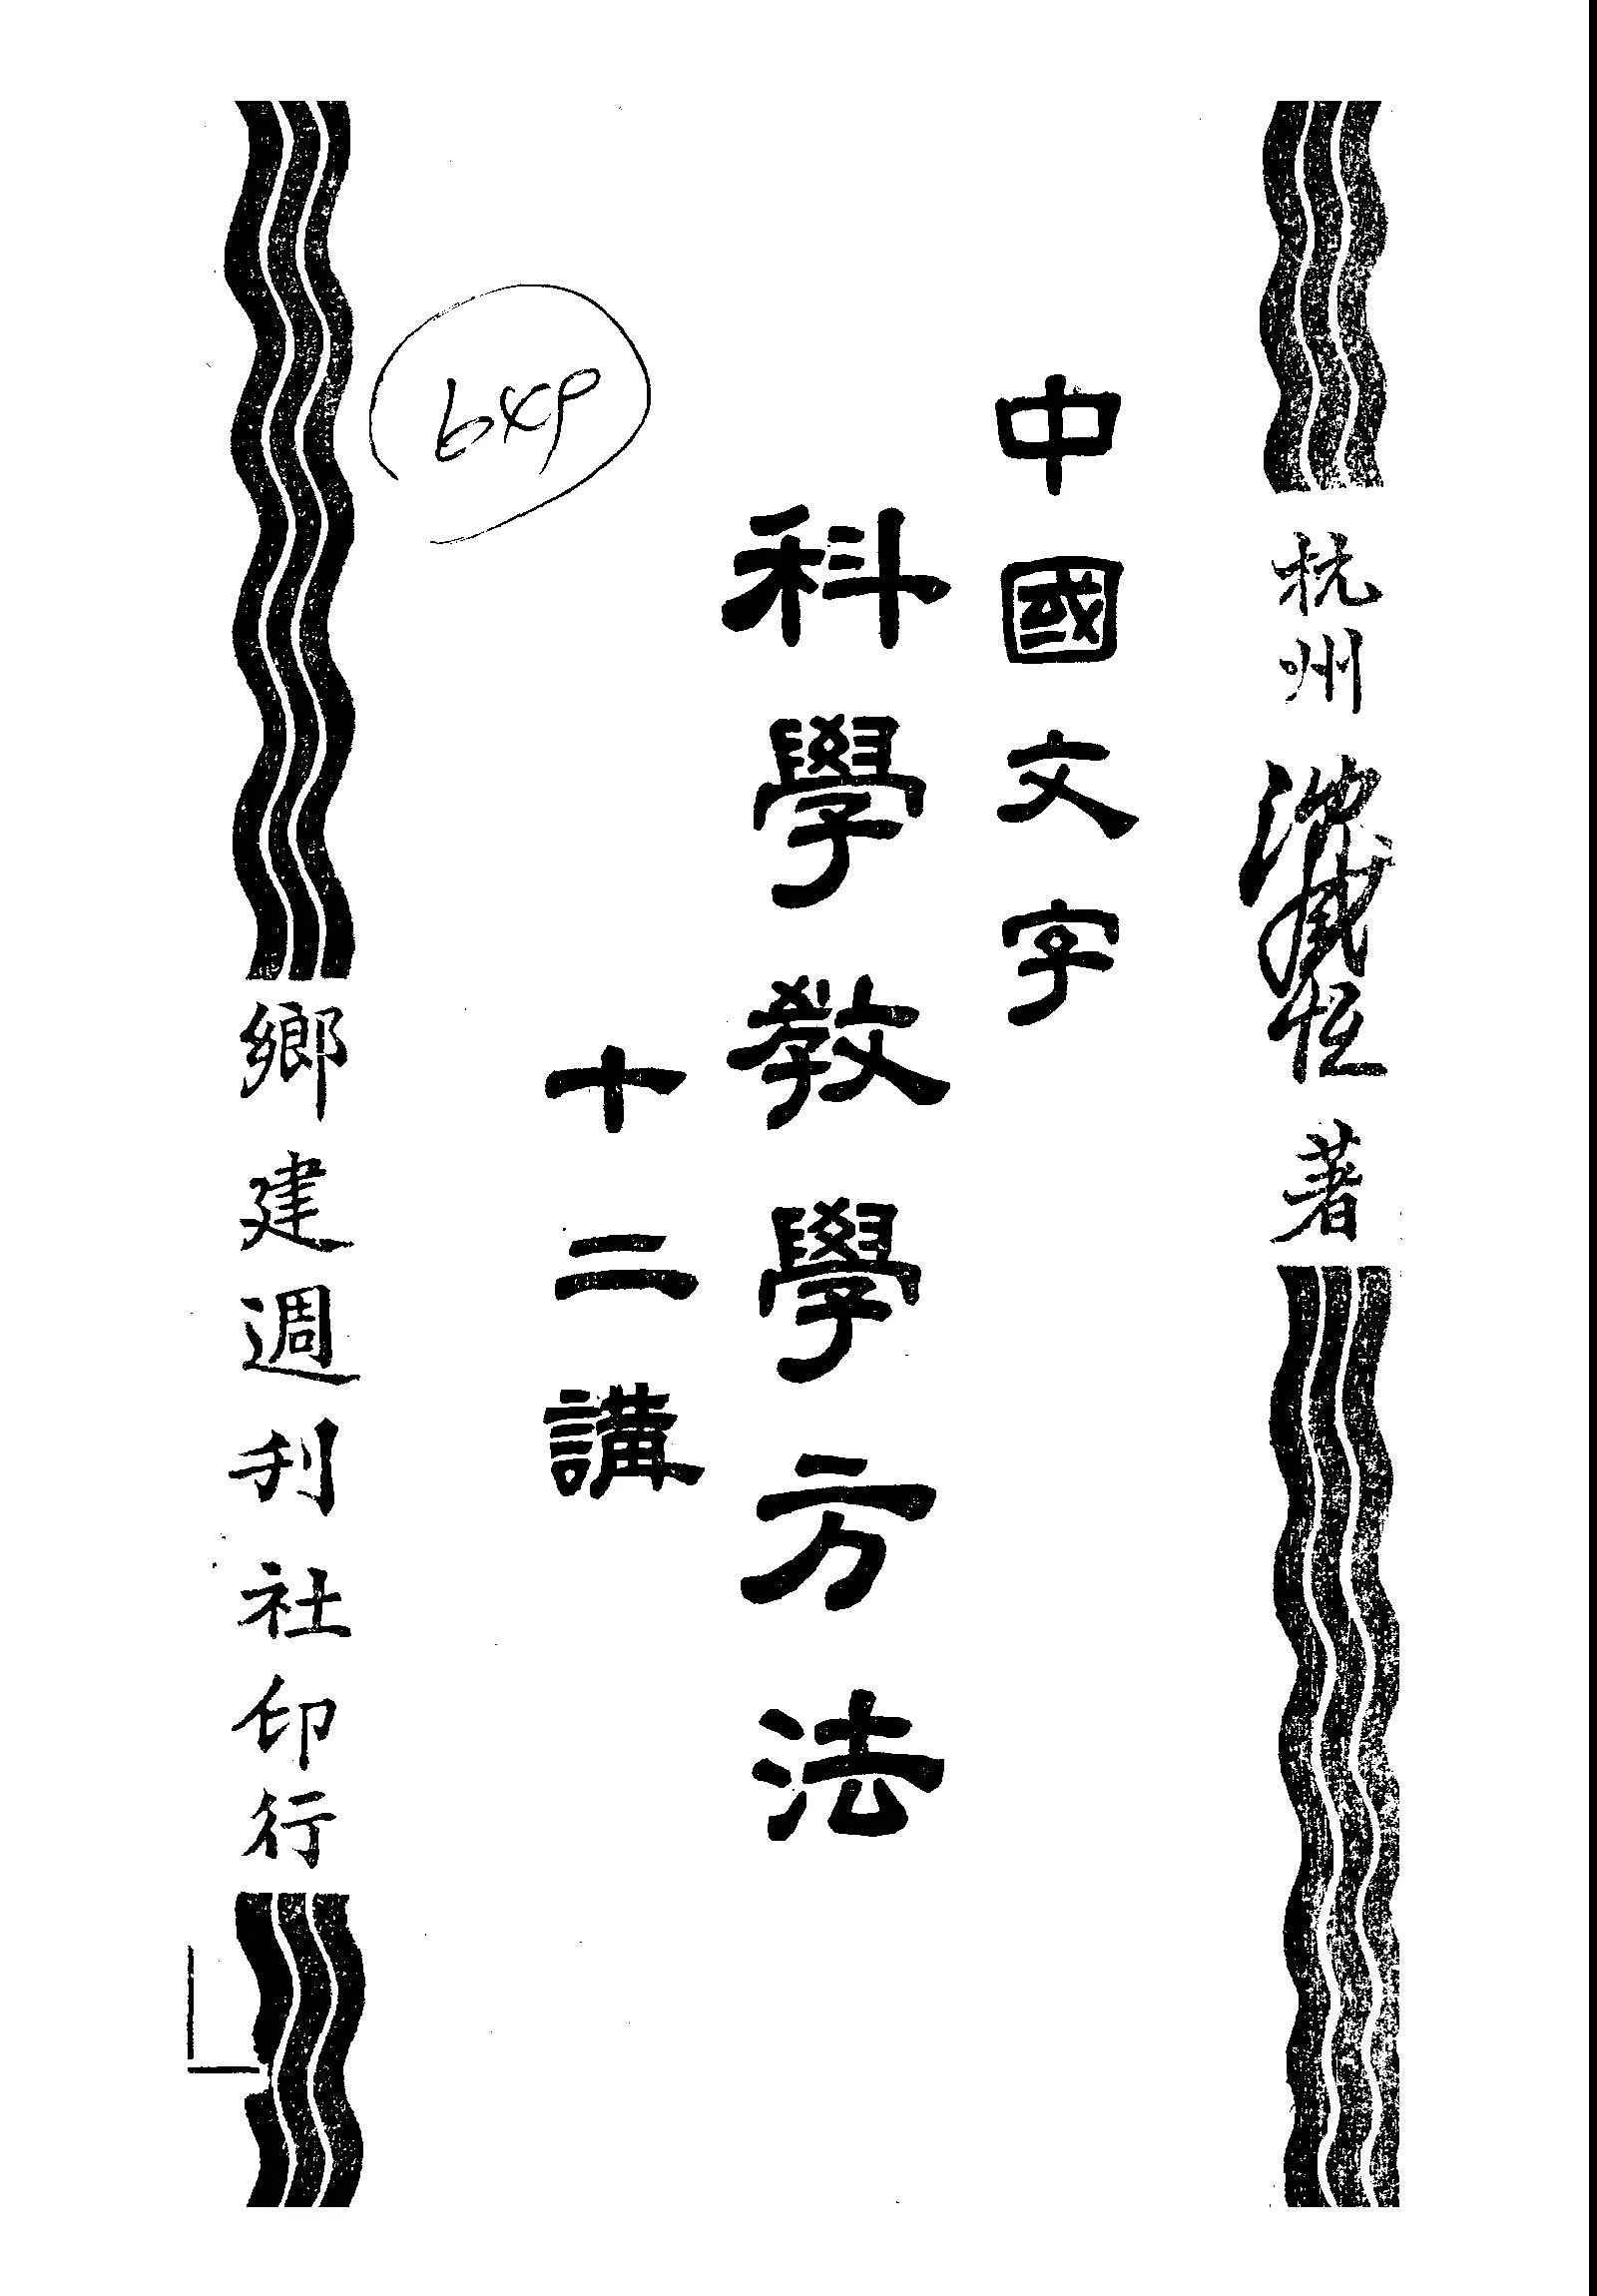 杭州沈咸恒著
中國文字
科學教學方法
十二講
鄉建週刊社印行